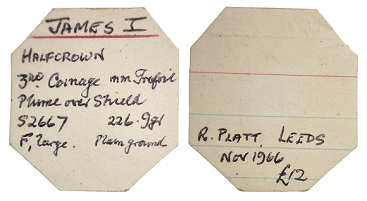 JAMES I
HALFCROWN
3RD. Coinage mm Trefoil
Plume over Shield
S2667 226.9gr
F, large. Plain ground
R. PLATT, LEEDS
NOV 1966
£12